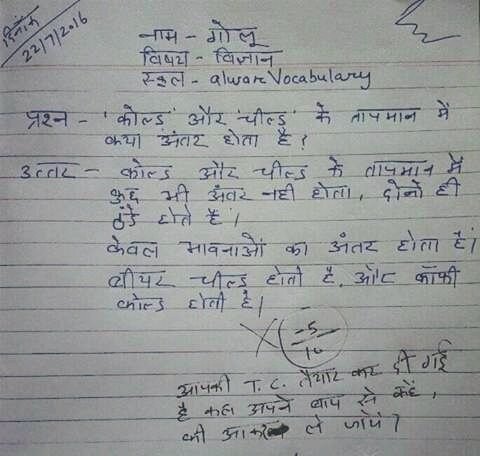 दिनांक
22/7/2016
नाम - गोलू
विषय - विज्ञान
स्कूल - alwareVocabulary
प्रश्न - 'कोल्ड' और 'चील्ड' के तापमान में
क्या अंतर होता है ?
उत्तर - कोल्ड और चील्ड के तापमान में
कुछ भी अंतर नही होता, दोनो ही
ठंडे होते है।
केवल भावनाओं का अंतर होता है।
बीयर चील्ड होती है, और कॉफी
कोल्ड होती है।
-5
10
आपकी T.C. तैयार कर दी गई
है कल अपने बाप से कहें,
की आकर ले जायें ?